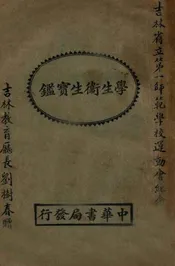 吉林省立第一師範學校運動會紀念
學生衛生寶鑑
中華書局發行
吉林教育廳長劉樹春贈